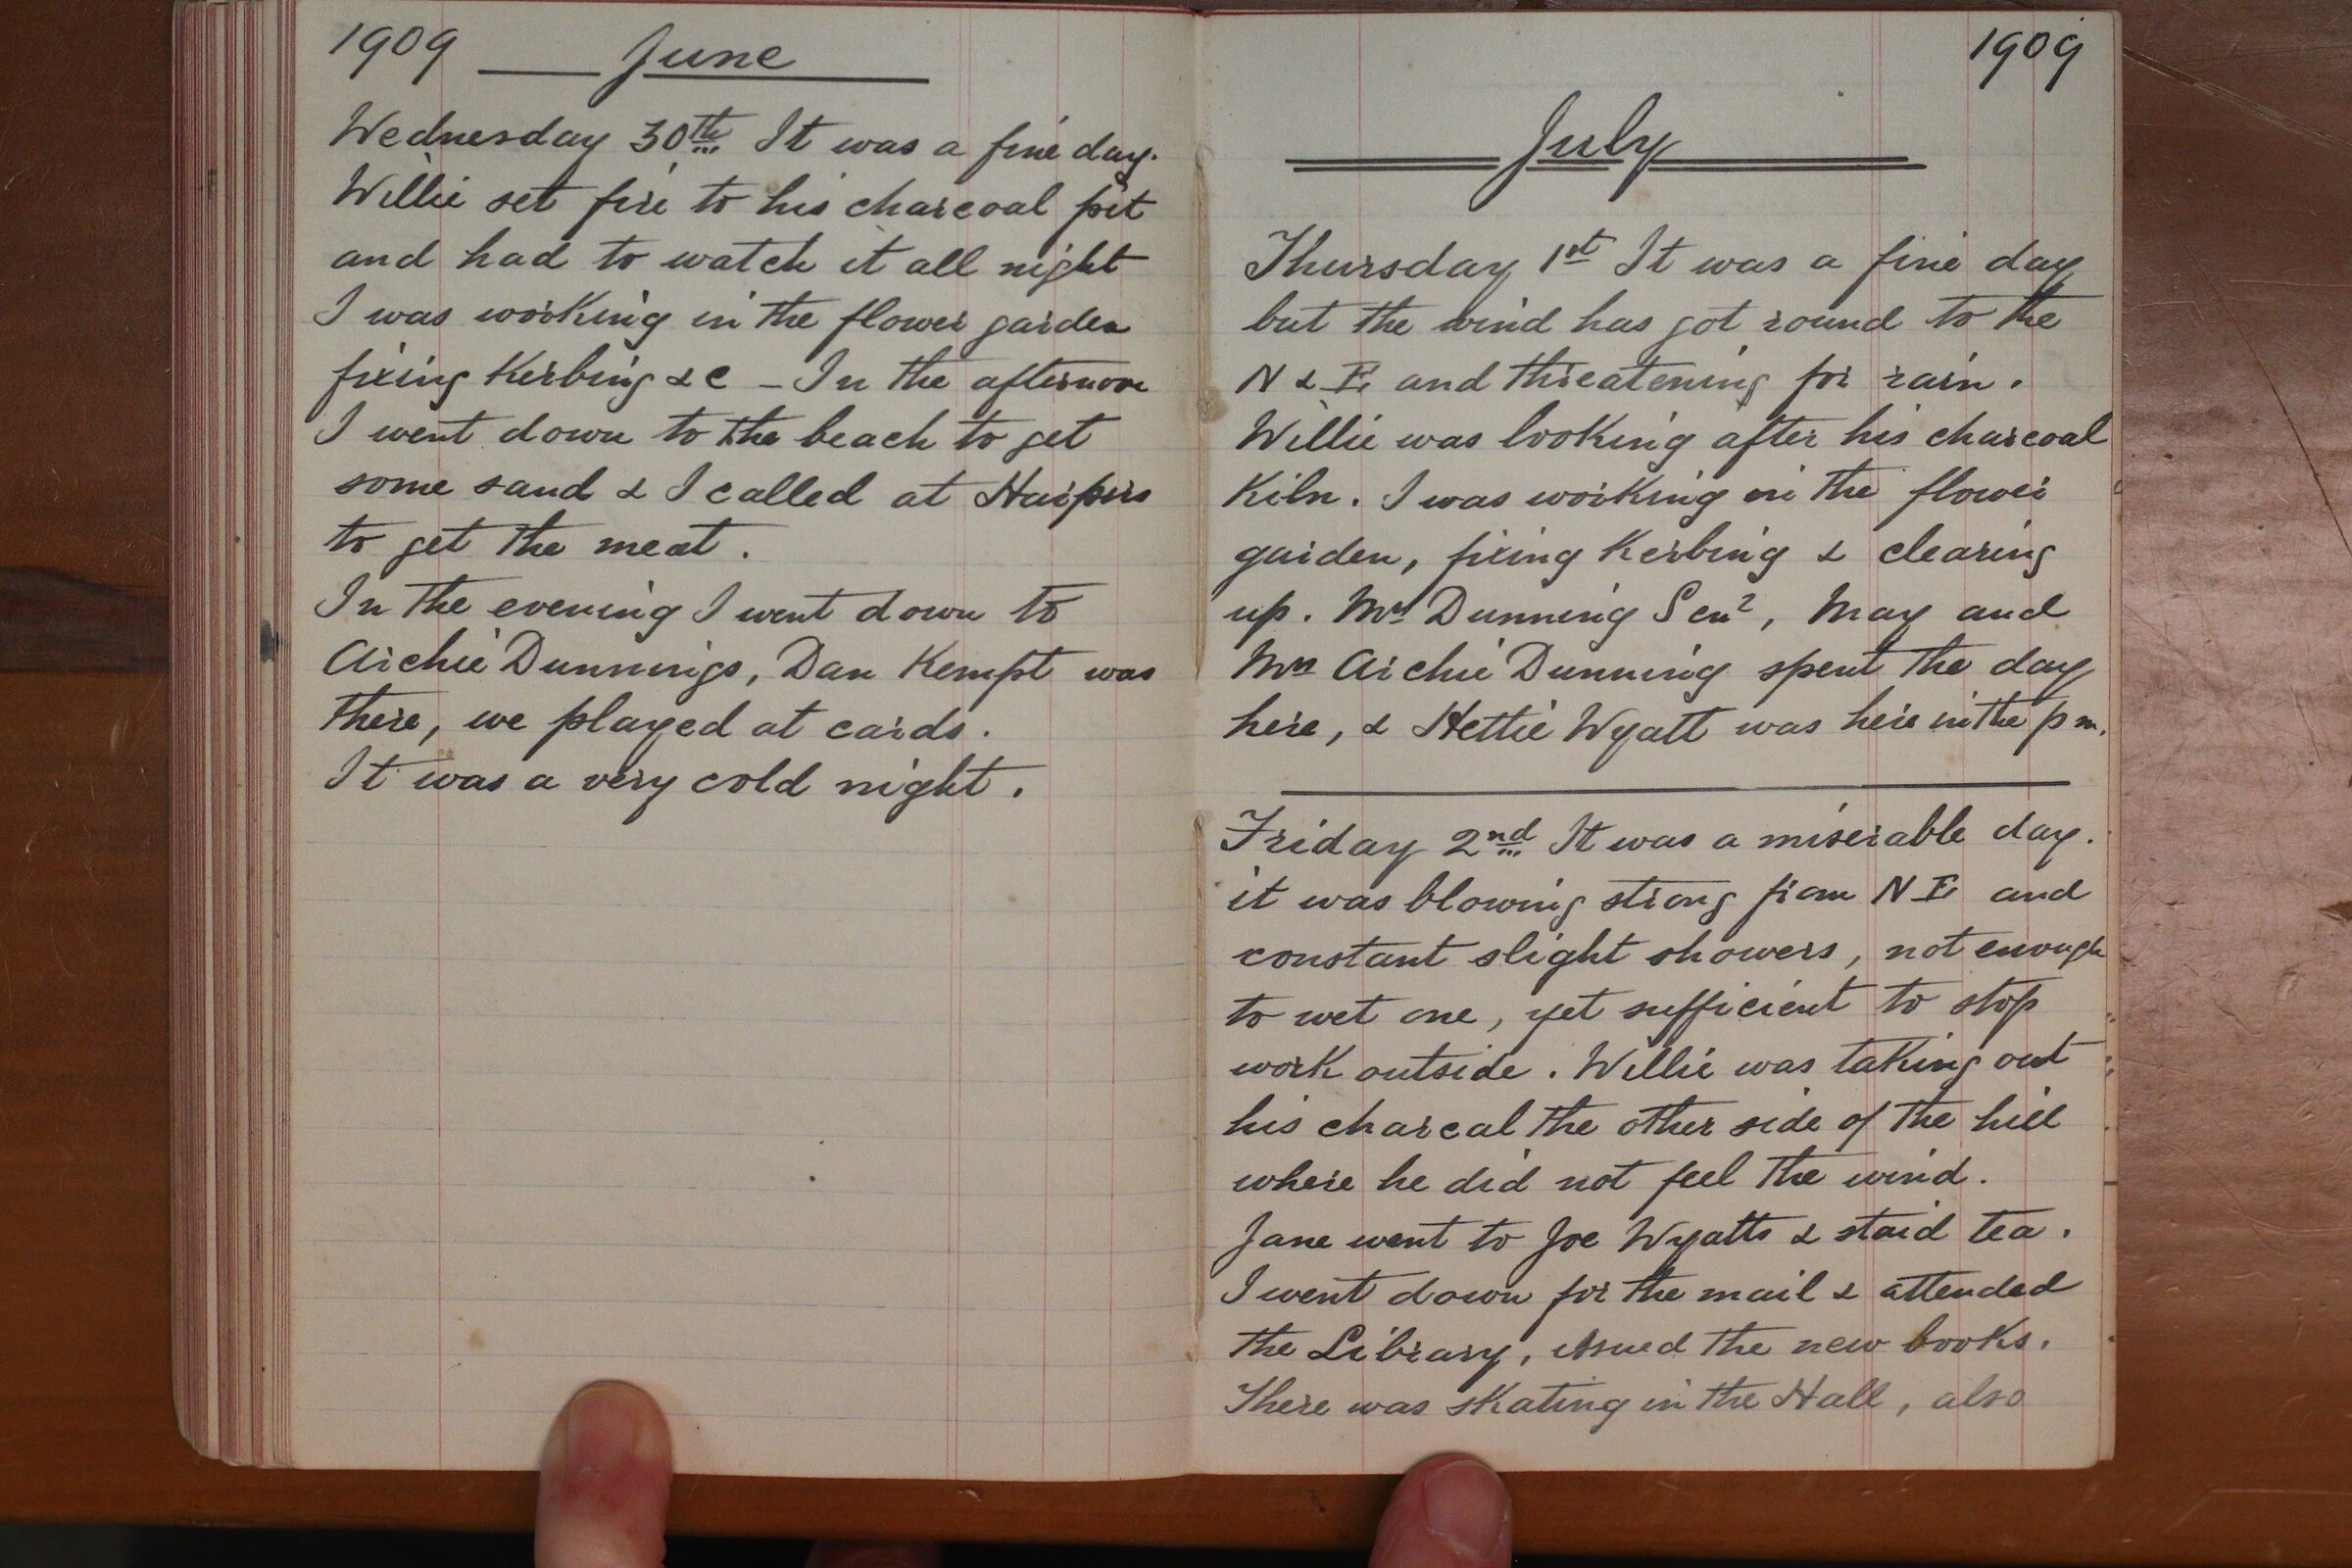 1909 June
Wednesday 30th It was a fine day.
Willie set fire to his charcoal pit
and had to watch it all night
I was working in the flower garden
fixing Kerbing &c - In the afternoon
I went down to the beach to get
some sand & I called at Harpers
to get the meat.
In the evening I went down to
Archie Dunnings, Dan Kempt was
there, we played at cards.
It was a very cold night.
1909
July
Thursday 1st It was a fine day
but the wind has got round to the
N & E and threatening for rain.
Willie was looking after his charcoal
Kiln. I was working in the flower
garden, fixing Kerbing & clearing
up. Mrs Dunning Senr, May and
Mrs Archie Dunning spent the day
here, & Hettie Wyatt was here in the p m.
Friday 2nd It was a miserable day.
it was blowing strong from N E and
constant slight showers, not enough
to wet one, yet sufficient to stop
work outside. Willie was taking out
his charcal the other side of the hill
where he did not feel the wind.
Jane went to Joe Wyatts & staid tea.
I went down for the mail & attended
the Library, issued the new books.
There was skating in the Hall, also